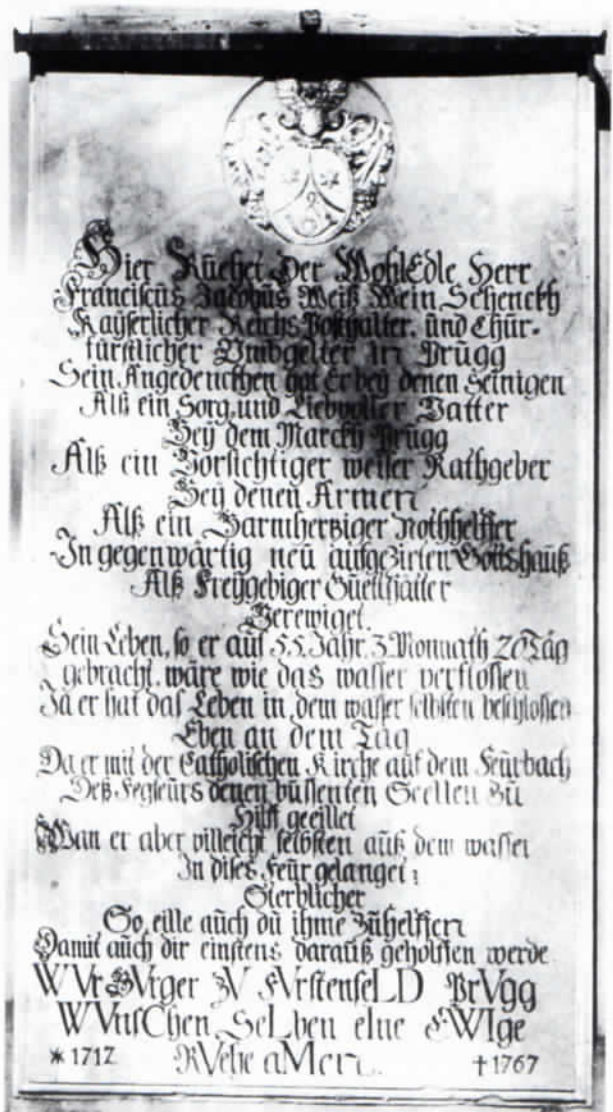 Hier Ruehet Der WohlEdle Herr
Franciscus Jacobus Weiß Wein Schenckh
Kaÿserlicher Reichs Posthalter. und Chur-
fürstlicher Umbgelter in Prugg
Sein Angedenckhen hat Er beÿ denen seinigen
Alß ein Sorg. und Liebvoller Vatter
Beÿ dem Marckh Prugg
Alß ein Vorsichtiger weiser Rathgeber
Beÿ denen Armen
Alß ein Barmhertziger Nothhelffer
In gegenwärtig neü aufgezirten Gottshauß
Alß Freÿgebiger Guetthätter
Verewiget.
Sein Leben, so er auf 55. Jahr. 3. Monnath 20 Tag
gebracht. wäre wie das wasser verflossen
Ja er hat das Leben in dem wasser selbsten beschlossen
Eben an dem Tag
Da er mit der Catholischen Kirche auf dem Feürbach
Deß Fegfeürs denen büssenten Seellen zu
Hilff geeillet
Wan er aber villeicht selbsten auß dem wasser
In dises Feür gelanget;
Sterblicher
So eille auch du ihme Zuhelffen
Damit auch dir einstens darauß geholffen werde
WVr BVrger ZV FVrstenfeLD PrVgg
WVnsChen SeLben eIne EWIge
* 1712 RVehe aMen. † 1767